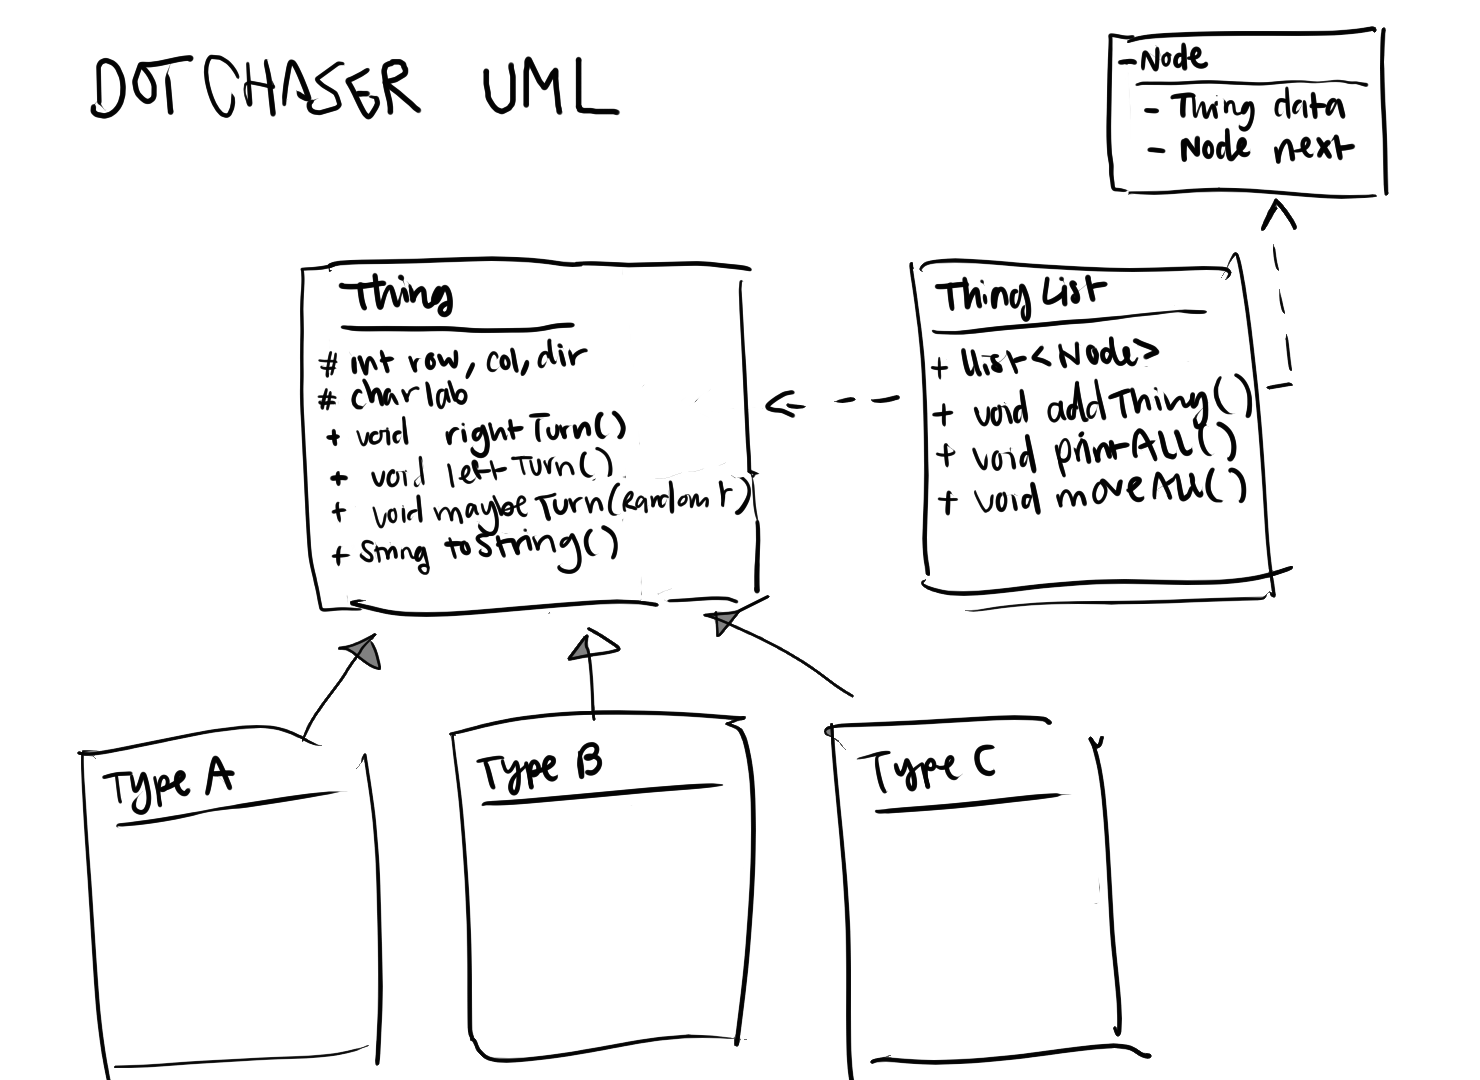 DOTCHASER UML
- Node
- Thing data
- Node next
Thing
# int row, col, dir
# char lab
+ void rightTurn()
+ void leftTurn()
+ void maybeTurn(Random r)
+ String toString()
Thing List
+ list<Node>
+ void addThing()
+ void printALL()
+ void moveAll()
Type A
Type B
Type C